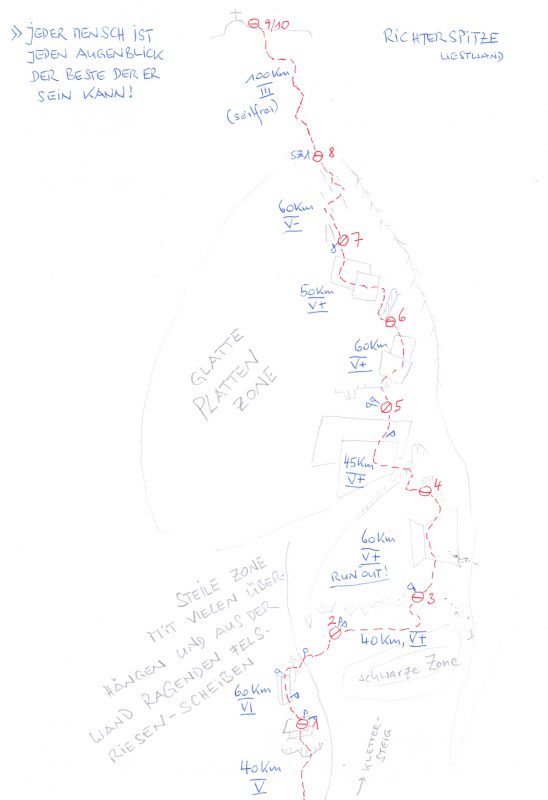 » JEDER MENSCH IST
JEDEN AUGENBLICK
DER BESTE DER ER
SEIN KANN!
RICHTERSPITZE
WESTWAND
9/10
100Km
III
(seilfrei)
SZ1
8
60Km
V-
7
50Km
V+
6
60Km
V+
5
GLATTE
PLATTEN
ZONE
45Km
V+
4
60Km
V+
RUN OUT!
3
2
40Km, V+
STEILE ZONE
MIT VIELEN ÜBER-
HÄNGEN UND AUS DER
WAND RAGENDEN FELS-
RIESEN-SCHEIBEN
schwarze Zone
60Km
VI
1
KLETTER-
STEIG
40Km
V